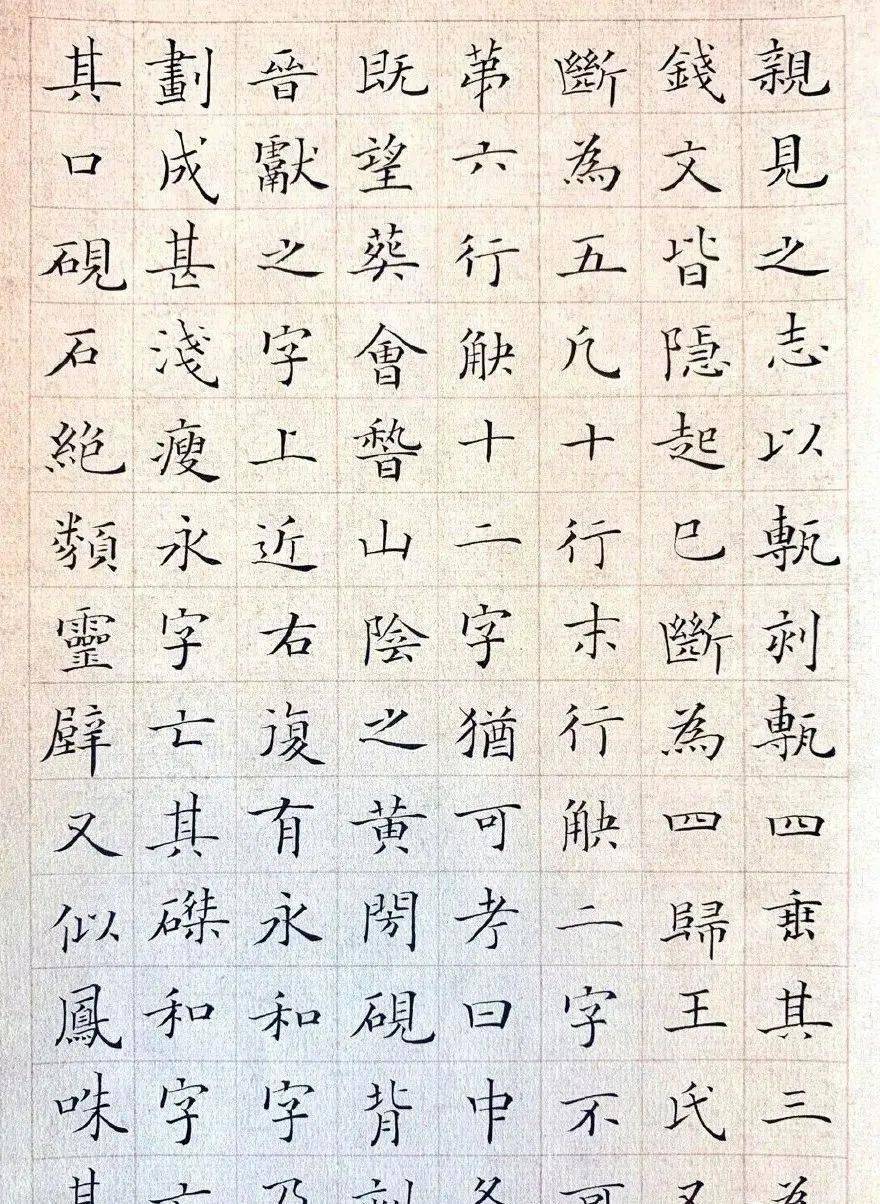 親見之志以甎刻甎四垂其三為
錢文皆隱起已斷為四歸王氏又
斷為五凡十行末行觖二字不可
苐六行觖十二字猶可考曰中冬
既望葬會嵆山陰之黃閍硯背刻
晉獻之字上近右復有永和字乃
劃成甚淺瘦永字亡其磔和字亡
其口硯石絶類靈壁又似鳳咮其